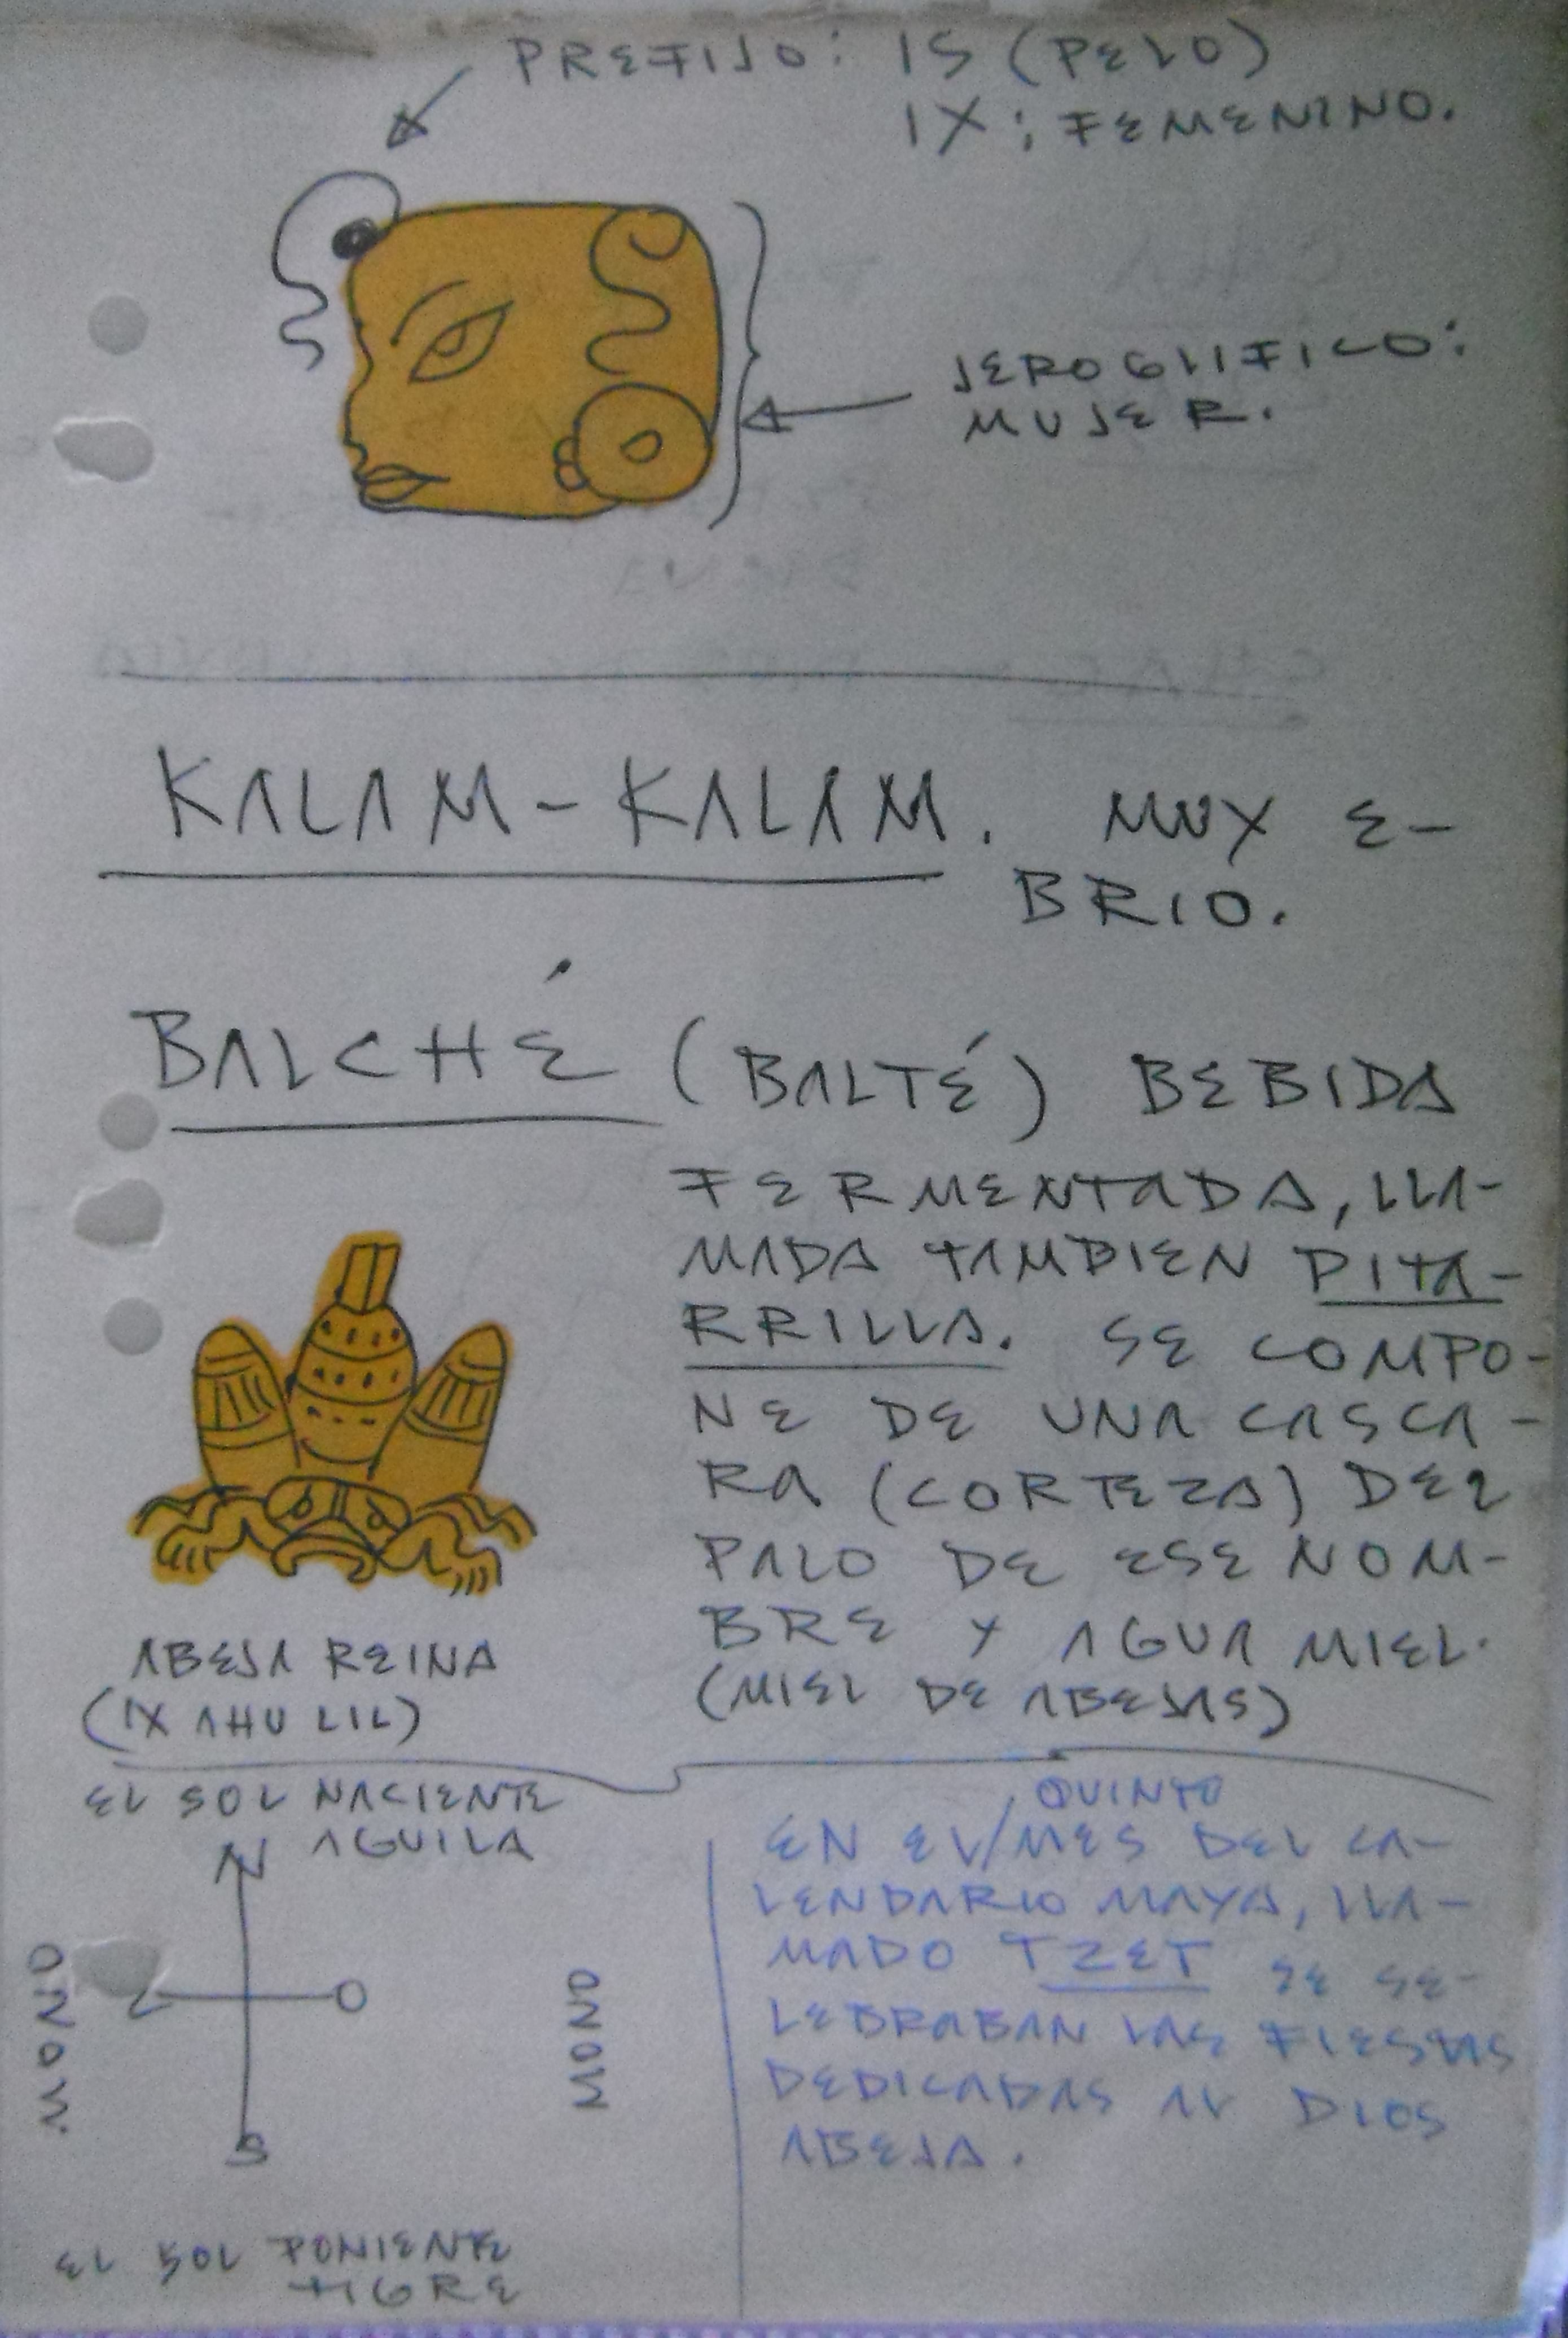 PREFIJO: IS (PELO)
IX; FEMENINO.
JEROGLIFICO:
MUJER.
KALAM-KALAM. MUY E-
BRIO.
BALCHÉ (BALTÉ) BEBIDA
FERMENTADA, LLA-
MADA TAMBIEN PITA-
RRILLA. SE COMPO-
NE DE UNA CASCA-
RA (CORTEZA) DEL
PALO DE ESE NOM-
BRE Y AGUA MIEL.
(MIEL DE ABEJAS)
ABEJA REINA
(IX AHU LIL)
EL SOL NACIENTE
AGUILA
N
O
S
MONO
MONO
EL SOL PONIENTE
TIGRE
QUINTO
EN EL/MES DEL CA-
LENDARIO MAYA, LLA-
MADO TZET SE SE-
LEBRABAN LAS FIESTAS
DEDICADAS AL DIOS
ABEJA.